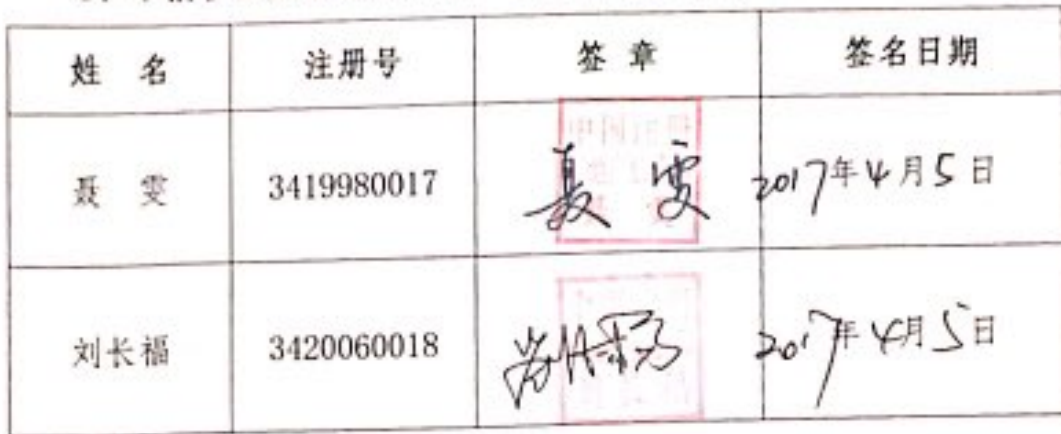 姓 名 注册号 签 章 签名日期
聂 雯 3419980017 聂 雯 2017年4月5日
刘长福 3420060018 2017年4月5日